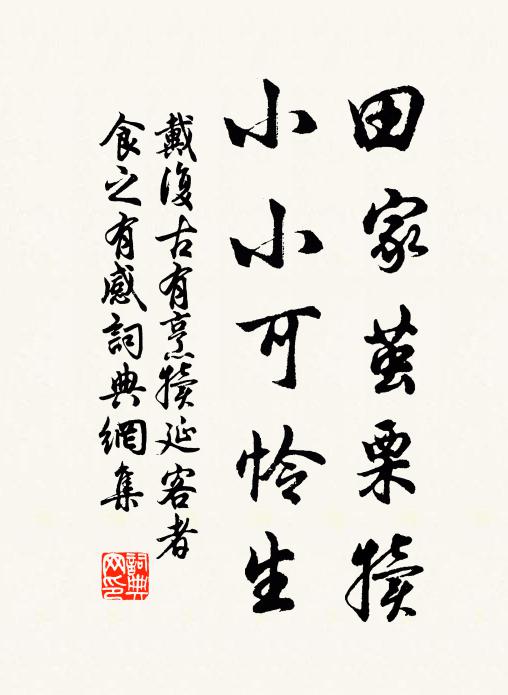 田家茧栗犊
小小可怜生
戴復古有烹犊延客者
食之有感詞典網集
詞典
网印